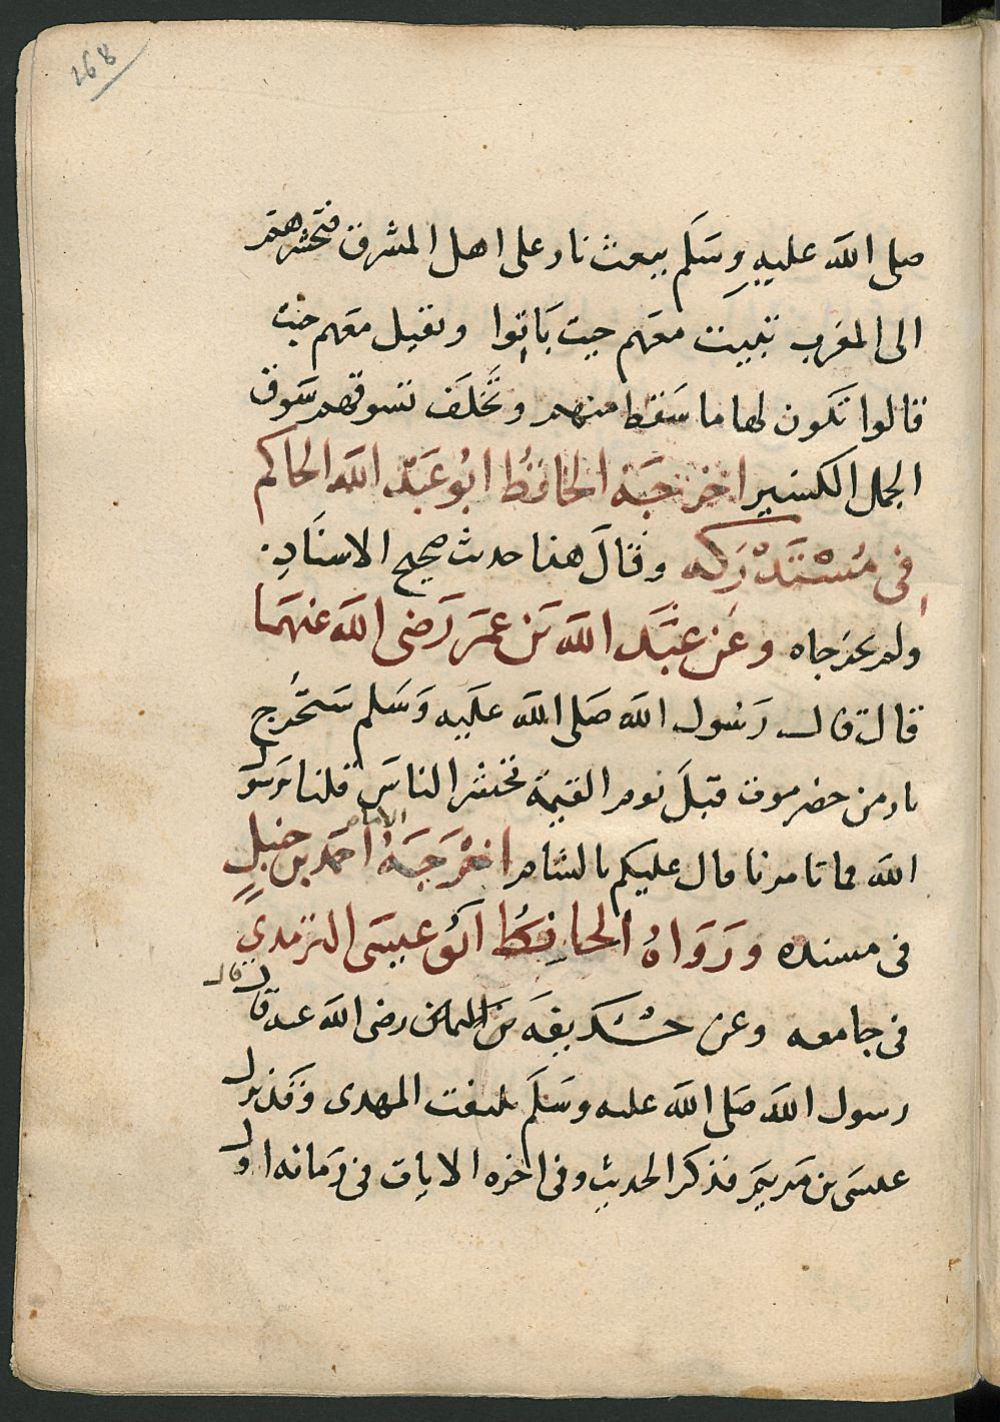 268
صلى الله عليه وسَلَم يبعث نار على اهل المشرق فتحشرهم
الى المغرب تبيت معهم حيث بَاتوا وتقيل معهم حيث
قالوا تكون لها ما سَقط منهم وتخلَف تسوقهم سَوق
الجمل الكسير اخرجَه الحافظُ ابُو عَبد الله الحاكم
في مُسْتَدْرَكه وقَالَ هذا حديث صحيح الاسنَادِ
ولم يخرجاه وعَن عبَد الله بن عمَر رَضى الله عنهَما
قال قال رَسُول الله صَلى الله علَيه وَسَلم سَتَخرج
نار من حضرموت قبَلَ يوم القيمة تحشر الناسَ قلنا يرَسُول
الله فما تامرنا قال عليكم بالشام اخرَجَهُ الامام احمَد بن حنبلٍ
في مسنده ورَوَاهُ الحافِظُ ابُو عيسَى الترمذي
في جامعه وعن حُذَيفَه بن اليمان رضى الله عنه قال قال
رسول الله صَلى الله عليه وسَلَم يلتفت المهدى وقَد نزل
عيسَى بن مَريَم فذكر الحديث وفي اخره الايات في زمانه اول